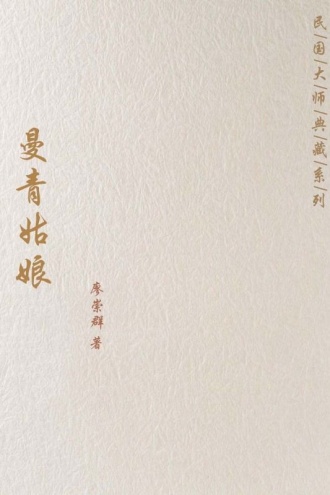 民国大师典藏系列
曼青姑娘
廖崇群 著